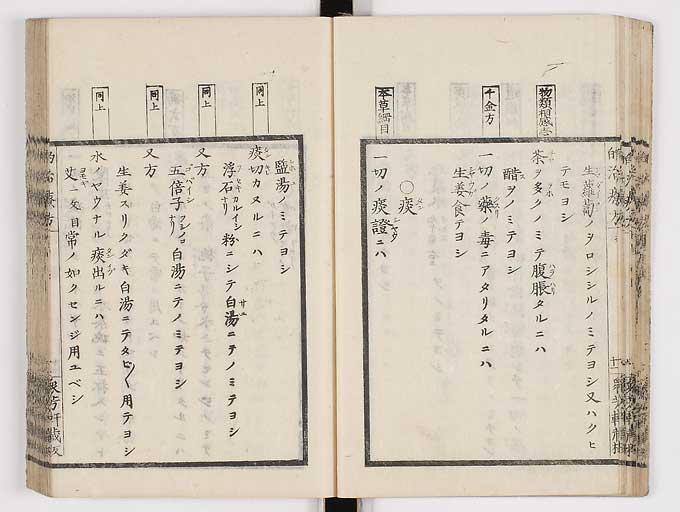 物類相感志
生蘿蔔ノヲロシシルノミテヨシ又ハクヒ
テモヨシ
茶ヲ多クノミテ腹脹タルニハ
醋ヲノミテヨシ
千金方
一切ノ藥ノ毒ニアタリタルニハ
生姜食テヨシ
○痰
本草綱目
一切ノ痰證ニハ
鹽湯ノミテヨシ
同上
痰切カヌルニハ
浮石カルイシナリ粉ニシテ白湯ニテノミテヨシ
同上
又方
五倍子フシノコナリ白湯ニテノミテヨシ
同上
又方
生姜スリクダキ白湯ニテタビ〱用テヨシ
同上
水ノヤウナル痰出ルニハ
艾 目常ノ如クセンジ用ユベシ